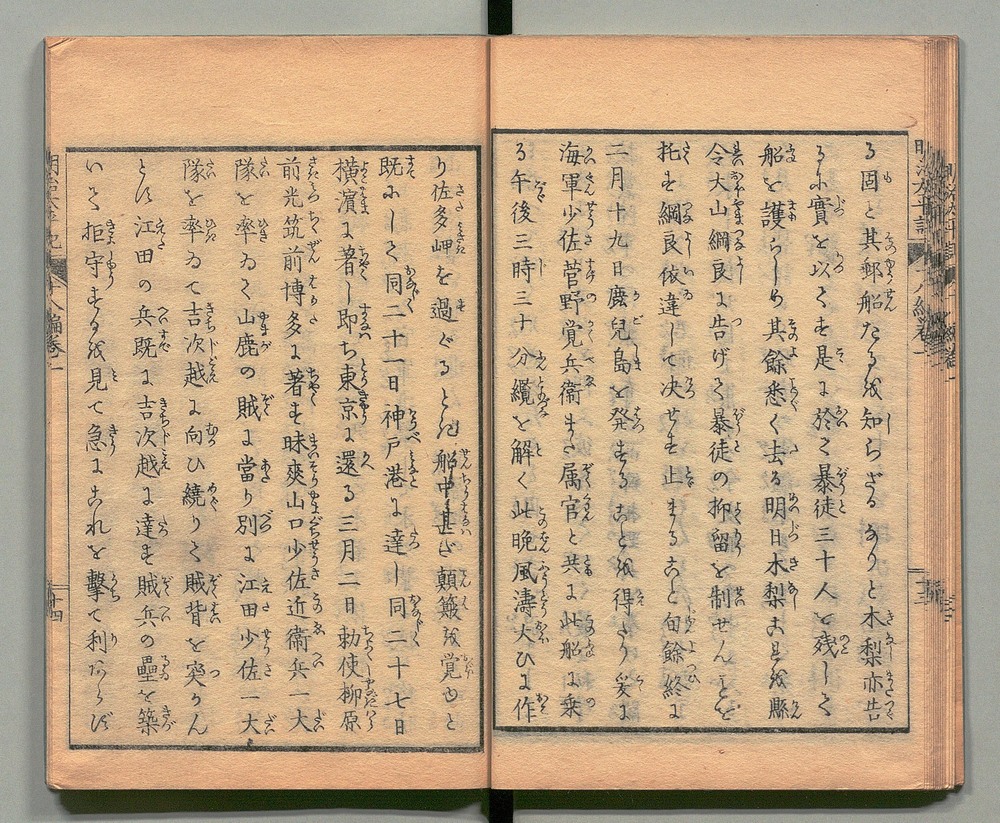 る固と其郵船たるを知らざるなりと木梨亦告
るに實を以てす是に於て暴徒三十人を残して
船を護らしめ其餘悉く去る明日木梨これを縣
令大山綱良に告げて暴徒の抑留を制せんとを
托す綱良依違して决せず止まること旬餘終に
二月十九日鹿兒島を発することを得たり爰に
海軍少佐菅野覚兵衛また属官と共に此船に乗
る午後三時三十分纜を解く此晩風濤大ひに作
り佐多岬を過ぐるとき船中甚だ顛簸を覚ゆと
既にして同二十一日神戸港に達し同二十七日
横濱に著し即ち東京に還る三月二日勅使柳原
前光筑前博多に著す昧爽山口少佐近衛兵一大
隊を率ゐて山鹿の賊に當り別に江田少佐一大
隊を率ゐて吉次越に向ひ繞りて賊背を突かん
とす江田の兵既に吉次越に達す賊兵の壘を築
いて拒守するを見て急にこれを擊て利あらず